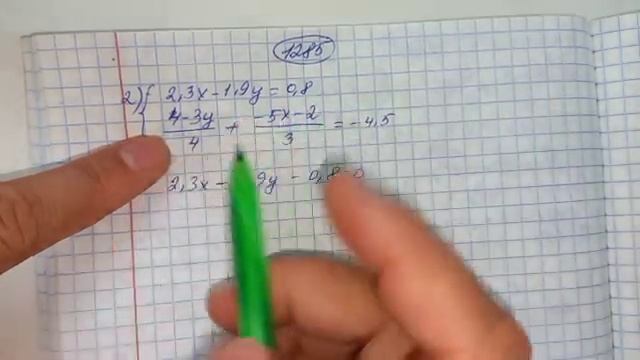 1285
2) 2,3x - 1,9y = 0,8
4-3y/4 + -5x-2/3 = -4,5
2,3x - 9y - 0,8